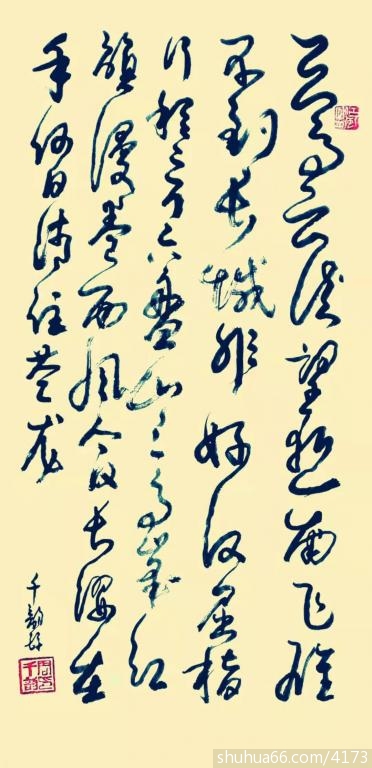 天高云淡望断南飞雁
不到长城非好汉屈指
行程二万六盘山上高峰红
旗漫卷西风今日长缨在
手何日缚住苍龙
千韵
shuhua66.com/4173